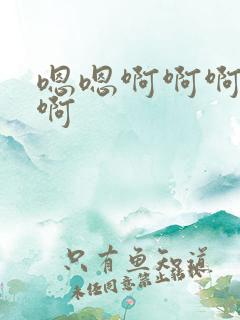 嗯嗯啊啊啊
啊
只有鱼知道
未经同意禁止转载